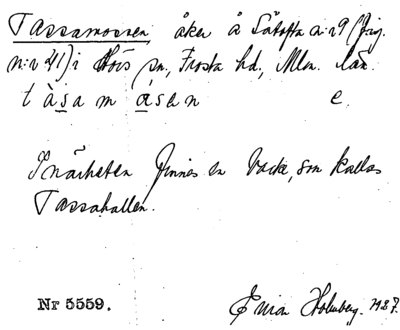 Tassamossen, åker å Sätofta a:29 (Jfr.
n:r 41) i Hörs sn, Frosta hd, Mlm. län.
tàsamåsen e.
I närheten finnes en backe, som kallas
Tassahallen.
Nr 5559. Holmberg. 1927.